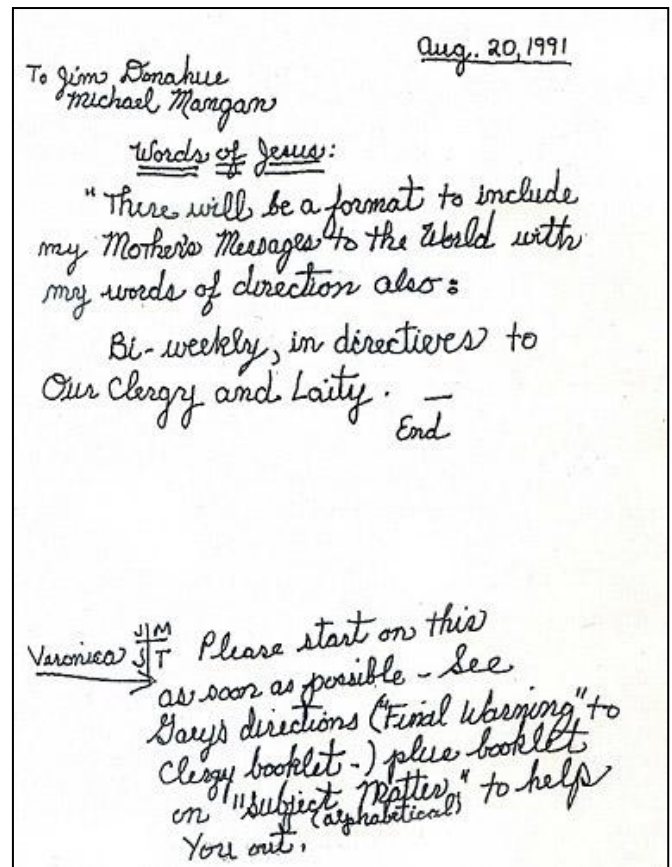 Aug. 20, 1991
To Jim Donahue
Michael Mangan
Words of Jesus:
"There will be a format to include
my Mother's Messages to the World with
my words of direction also:
Bi-weekly, in directives to
Our Clergy and Laity. —
End
J M
Veronica J T Please start on this
as soon as possible - See
Gary's directions ("Final Warning" to
Clergy booklet -) plus booklet
on "Subject Matter" to help
(alphabetical)
You out.